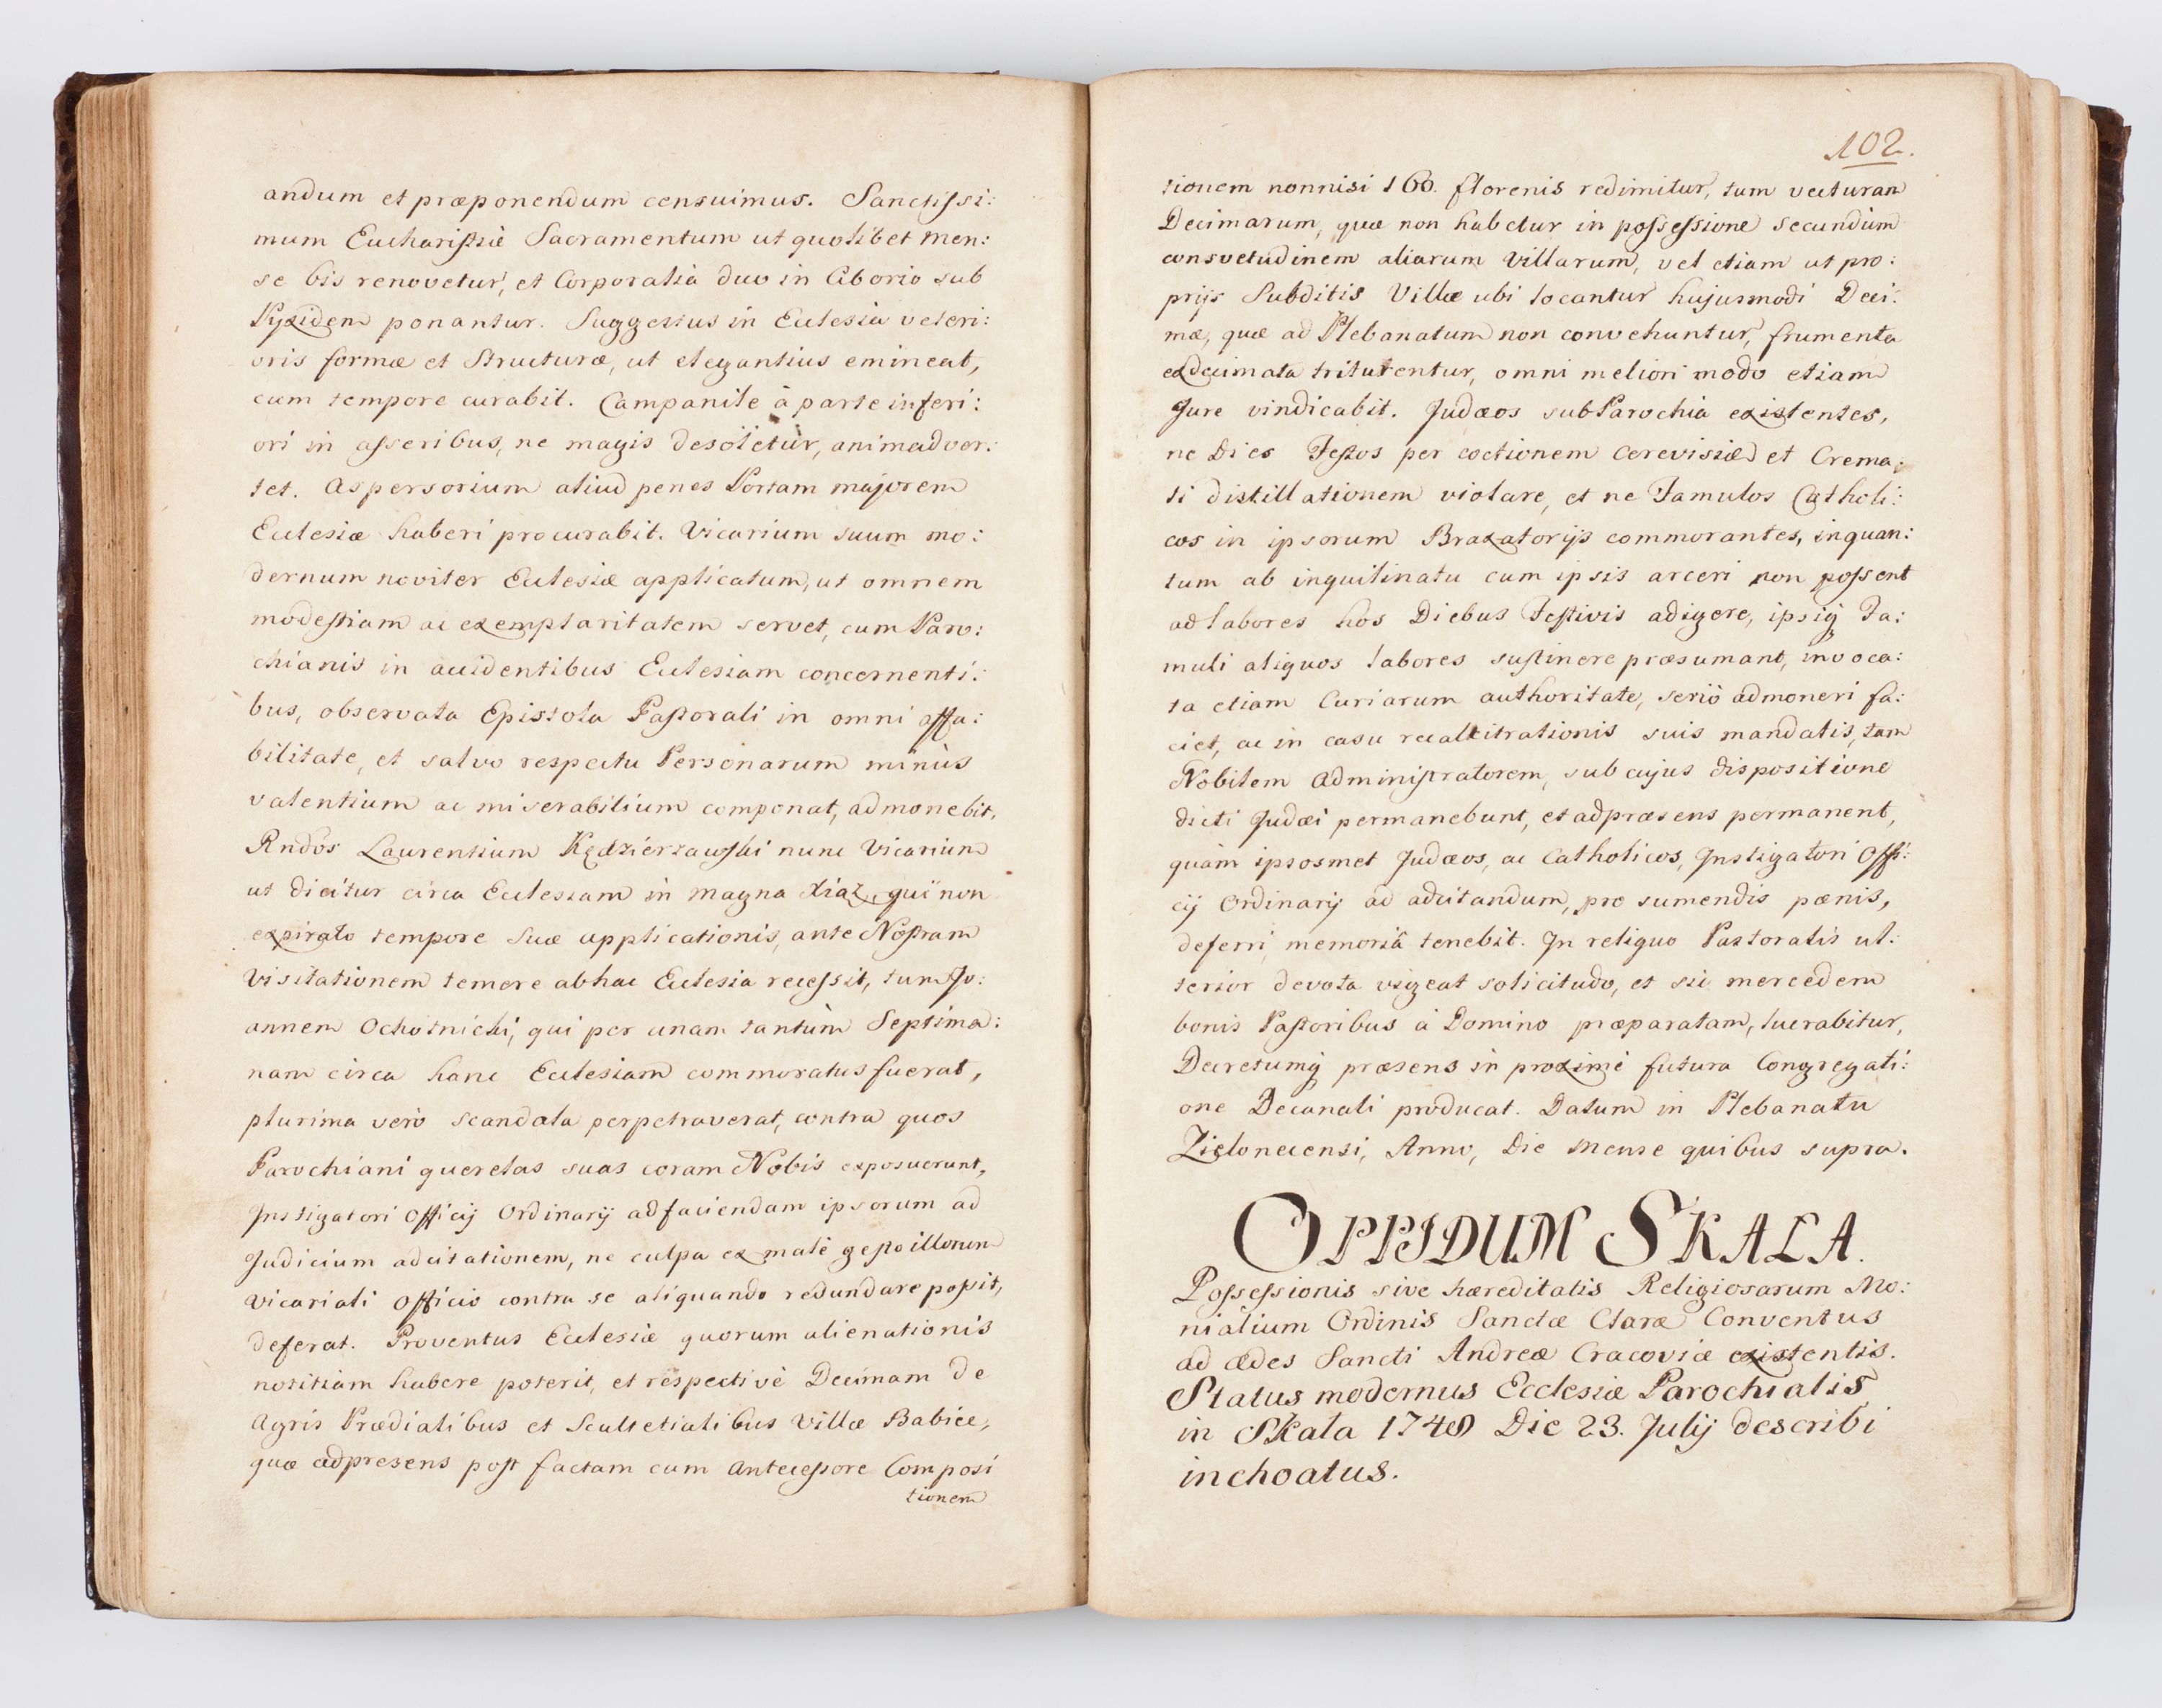 andum et præponendum censuimus. Sanctissi:
mum Eucharistiæ Sacramentum ut quolibet men:
se bis renovetur, et Corporalia duo in Ciborio sub
Pyxidem ponantur. Suggestus in Ecclesia veteri:
oris formæ et Structuræ, ut elegantius emineat,
cum tempore curabit. Campanile à parte inferi:
ori in asseribus, ne magis desoletur, animadver:
tet. Aspersorium aliud penes Portam majorem
Ecclesiæ haberi procurabit. Vicarium suum mo:
dernum noviter Ecclesiæ applicatum, ut omnem
modestiam ac exemplaritatem servet, cum Paro:
chianis in accidentibus Ecclesiam concernenti:
bus, observata Epistola Pastorali in omni affa:
bilitate, et salvo respectu Personarum minùs
valentium ac miserabilium componat, admonebit.
Rndos Laurentium Kędzierzawski nunc Vicarium
ut dicitur circa Ecclesiam in magna Xiąz, qui non
expirato tempore suæ applicationis, ante Nostram
Visitationem temere ab hac Ecclesia recessit, tum Jo:
annem Ochotnicki, qui per unam tantùm Septima:
nam circa hanc Ecclesiam commoratus fuerat,
plurima verò scandala perpetraverat, contra quos
Parochiani querelas suas coram Nobis exposuerunt,
Instigatori Officij Ordinarij ad faciendam ipsorum ad
Judicium adcitationem, ne culpa ex malè gesto illorum
Vicariali Officio contra se aliquando redundare possit,
deferat. Proventus Ecclesiæ quorum alienationis
notitiam habere poterit, et respectivè Decimam de
Agris Prædialibus et Scultetialibus Villæ Babice,
quæ adpresens post factam cum Antecessore Composi
tionem
102.
tionem nonnisi 160. florenis redimitur, tum vecturam
Decimarum, quæ non habetur in possessione secundùm
consvetudinem aliarum Villarum, vel etiam ut pro:
prijs Subditis Villæ ubi locantur hujusmodi Deci:
mæ, quæ ad Plebanatum non convehuntur, frumenta
exdecimata triturentur, omni meliori modo etiam
Jure vindicabit. Judæos sub Parochia existentes,
ne Dies Festos per coctionem Cerevisiæ et Crema:
ti distillationem violare, et ne Famulos Catholi:
cos in ipsorum Braxatorijs commorantes, inquan:
tum ab inquilinatu cum ipsis arceri non possent
ad labores hos Diebus Festivis adigere, ipsiq Fa:
muli aliquos labores sustinere præsumant, invoca:
ta etiam Curiarum authoritate, seriò admoneri fa:
ciet, ac in casu recalcitrationis suis mandatis, tam
Nobilem Administratorem, sub cujus dispositione
dicti Judæi permanebunt, et adpræsens permanent,
quàm ipsosmet Judæos, ac Catholicos, Instigatori Offi:
cij Ordinarij ad adcitandum, pro sumendis pœnis,
deferri, memoriâ tenebit. In reliquo Pastoralis ul:
terior devota vigeat solicitudo, et sic mercedem
bonis Pastoribus à Domino præparatam, lucrabitur,
Decretumq præsens in proximè futura Congregati:
one Decanali producat. Datum in Plebanatu
Zielonecensi, Anno, Die Mense quibus supra.
OPPIDUM SKALA.
Possessionis sive hæreditatis Religiosarum Mo:
nialium Ordinis Sanctæ Claræ Conventus
ad ædes Sancti Andreæ Cracoviæ existentis.
Status modernus Ecclesiæ Parochialis
in Skala 1748 Die 23. Julij describi
inchoatus.